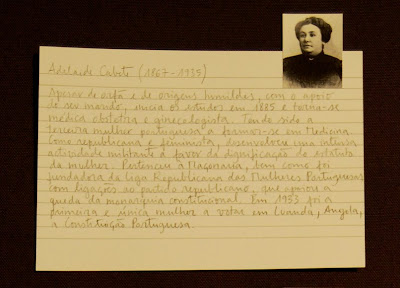 Adelaide Cabete (1867-1935)
Apesar de orfã e de origens humildes, com o apoio
do seu marido, inicia os estudos em 1885 e torna-se
médica obstetra e ginecologista. Tendo sido a
terceira mulher portuguesa a formar-se em Medicina.
Como republicana e feminista, desenvolveu uma intensa
actividade militante a favor da dignificação do estatuto
da mulher. Pertenceu à Maçonaria, bem como foi
fundadora da Liga Republicana das Mulheres Portuguesas
com ligações ao partido republicano, que apoiou a
queda da monarquia constitucional. Em 1933 foi a
primeira e única mulher a votar em Luanda, Angola,
a Constituição Portuguesa.